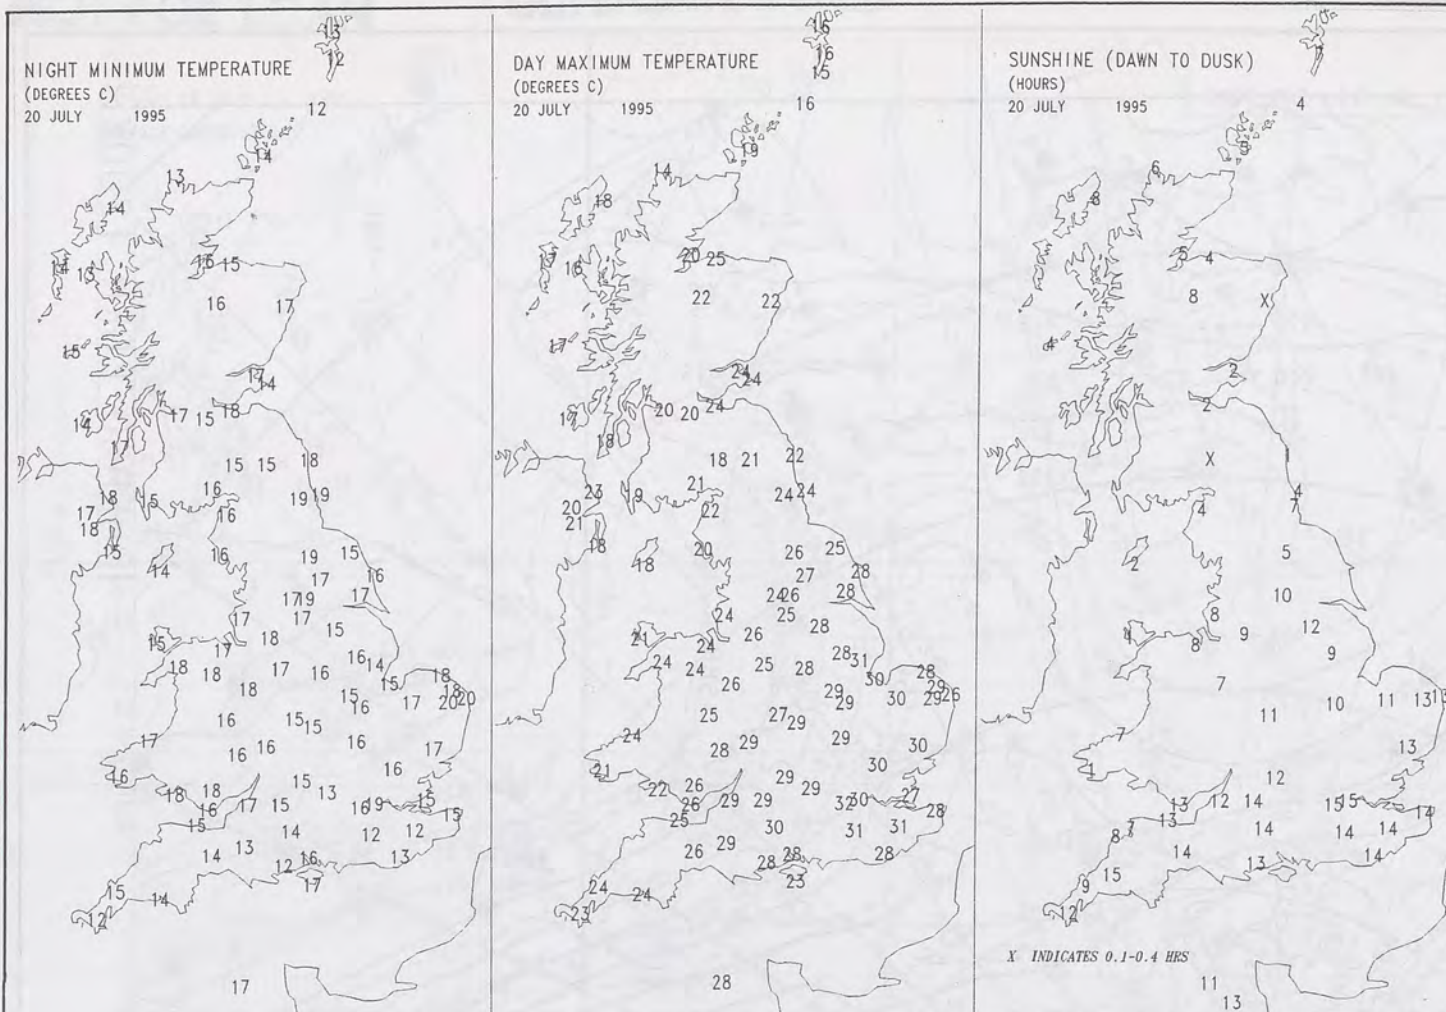 NIGHT MINIMUM TEMPERATURE
(DEGREES C)
20 JULY 1995
13
12
12
14
13
14
14 13
16 15
16 17
15
17
14
14 17 15 18
17
15 15 18
18 15 16 19 19
17 16
18
15 14 16 19 15
17 16
17 19 17
17 17
15 18 15
17
18 18 17 16 16 14
15 18
18 15 17 18 20 20
16
16 15 15
17 16 16 16 17
16 16
18 18 15 13
16 17 15 16 19 15
15 14 12 12 15
14 13 16 13
12
15 14 17
12
17
DAY MAXIMUM TEMPERATURE
(DEGREES C)
20 JULY 1995
16
16
15
16
19
14
18
17 16
20 25
22 22
17
24
24
20 20 24
18
18 21 22
23 19 21 24 24
20 22
21
18 18 20 26 25
27 28
24 26 28
24 25
21 26 28
24
24 24 25 28 28 31
30 28
26 29 29 30 29 29 26
25 27 29
24 28 29 29 30
21 30
22 26 29 29
26 29 29 32 30 27
25 30 31 31 28
26 29 28 28 28
24 24 23
23
28
SUNSHINE (DAWN TO DUSK)
(HOURS)
20 JULY 1995
4
6
8
5 4
8 X
4
2
2
X 1
4 4 7
2 5
10
8 12
4 8 9 9
7
11 10 11 13 13
7 13
1 12
13 12 14 15 15
8 7 13 14 14 14 14
14 13 14
9 15
12
X INDICATES 0.1-0.4 HRS
11
13